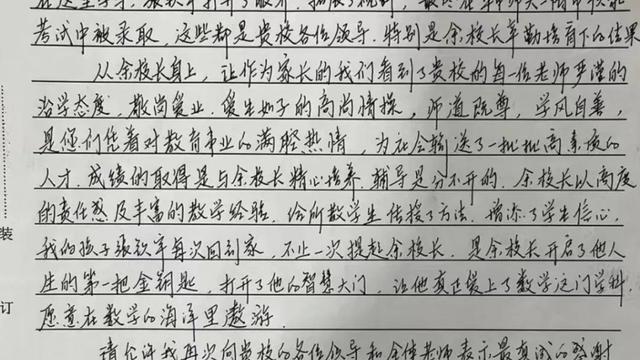 考试中被录取，这些都是贵校各位领导，特别是余校长辛勤培育下的结果
从余校长身上，让作为家长的我们看到了贵校的每一位老师严谨的
治学态度，敬岗爱业、爱生如子的高尚情操，师道既尊，学风自善，
是您们凭着对教育事业的满腔热情，为社会输送了一批批高素质的
人才，成绩的取得是与余校长精心培养、辅导是分不开的。余校长以高度
的责任感及丰富的教学经验，给所教学生传授了方法，增添了学生信心，
我的孩子张钦辛每次回到家，不止一次提起余校长，是余校长开启了他人
生的第一把金钥匙，打开了他的智慧大门，让他真正爱上了数学这门学科，
装
愿意在数学的海洋里遨游。
订
请允许我再次向贵校的各位领导和全体老师表示最真诚的感谢